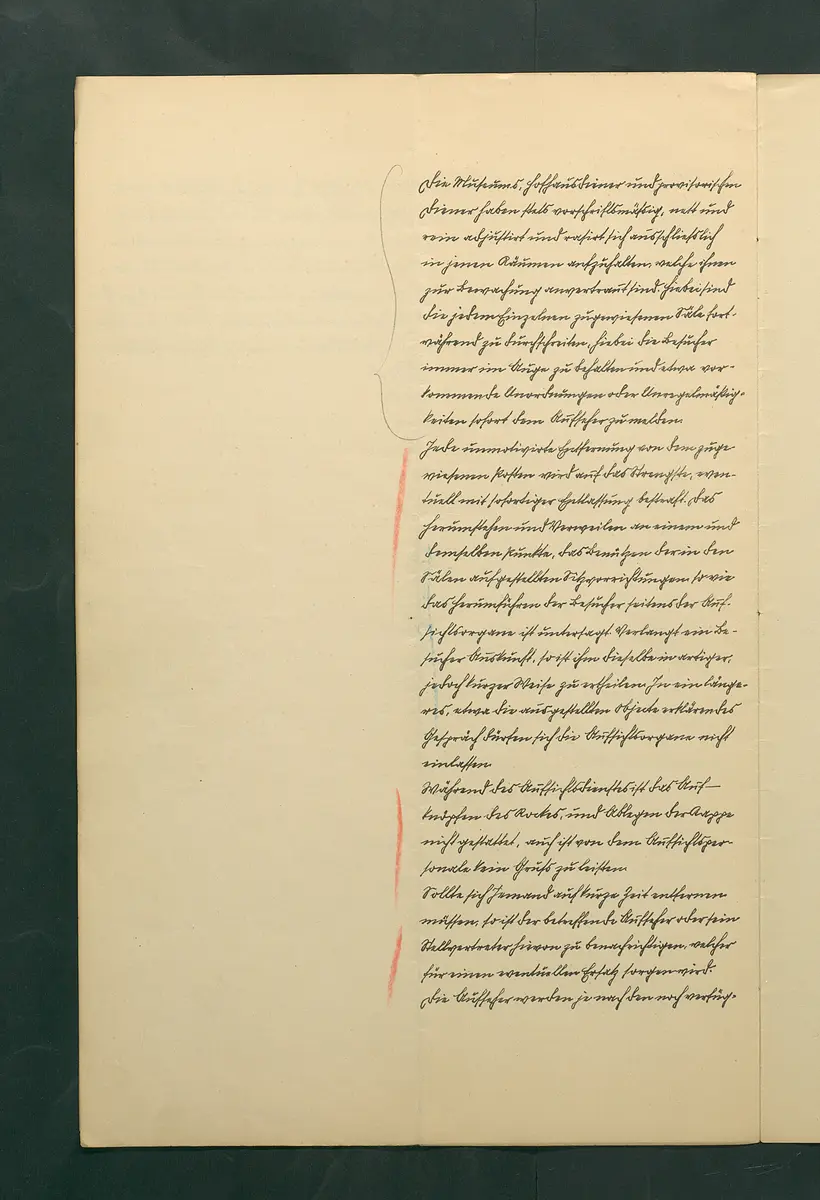 Die Museums, Hofhausdiener und provisorischen
Diener haben stets vorschriftsmäßig, nett und
rein adjustirt und rasirt sich ausschließlich
in jenen Räumen aufzuhalten, welche ihnen
zur Bewachung anvertraut sind. Hiebei sind
die jedem Einzelnen zugewiesenen Säle fort-
während zu durchschreiten, hiebei die Besucher
immer im Auge zu behalten und etwa vor-
kommende Unordnungen oder Unregelmäßig-
keiten sofort dem Aufseher zu melden.
Jede unmotivirte Entfernung von dem zuge
wiesenen Posten wird auf das Strengste, even-
tuell mit sofortiger Entlassung bestraft. Das
Herumstehen und Verweilen an einem und
demselben Punkte, das Benützen der in den
Sälen aufgestellten Sitzvorrichtungen so wie
das Herumführen der Besucher seitens der Auf-
sichtsorgane ist untersagt. Verlangt ein Be-
sucher Auskunft, so ist ihm dieselbe in artiger,
jedoch kurzer Weise zu ertheilen. In ein länge-
res, etwa die ausgestellten Objecte erklärendes
Gespräch dürfen sich die Aufsichtsorgane nicht
einlassen.
Während des Aufsichtsdienstes ist das Auf-
knöpfen des Rockes, und Ablegen der Kappe
nicht gestattet, auch ist von dem Aufsichtsper-
sonale kein Gruß zu leisten.
Sollte sich Jemand auf kurze Zeit entfernen
müssen, so ist der betreffende Aufseher oder sein
Stellvertreter hievon zu benachrichtigen, welcher
für einen eventuellen Ersatz sorgen wird.
Die Aufseher werden je nach den noch verfüg-